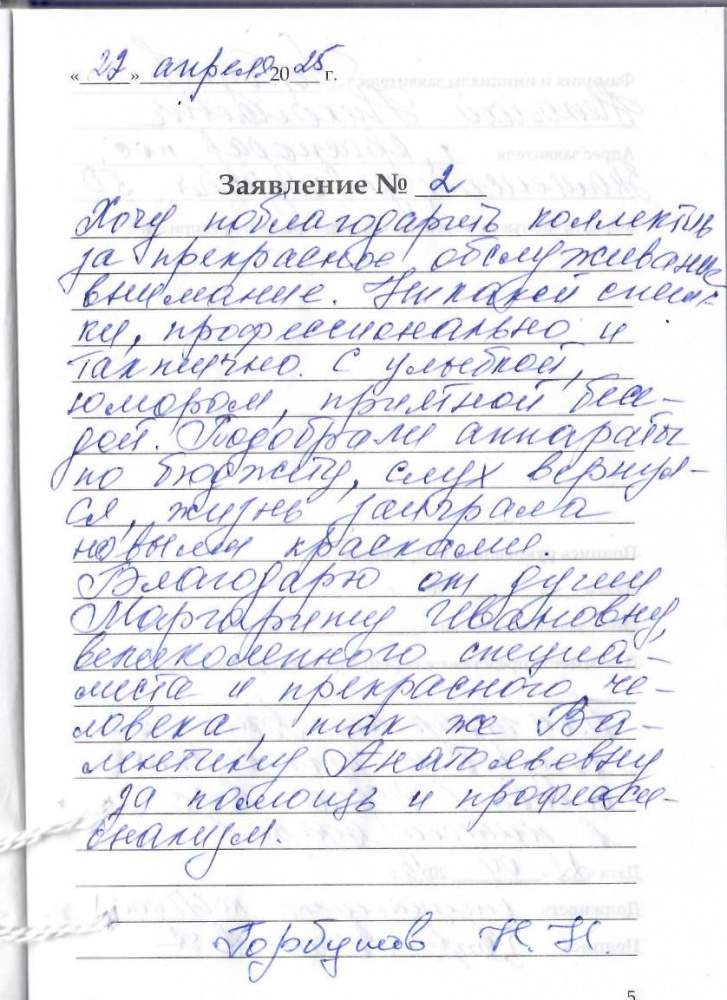 «22» апреля 2025 г.
Заявление № 2
Хочу поблагодарить коллектив
за прекрасное обслуживание
внимание. Никакой спеш-
ки, профессионально и
тактично. С улыбкой,
юмором, приятной бесе-
дой. Подобрали аппараты
по бюджету, слух вернул-
ся, жизнь заиграла
новыми красками.
Благодарю от души
Маргариту Ивановну,
великолепного специа-
листа и прекрасного че-
ловека, так же Ва-
лентину Анатольевну
за помощь и професси-
онализм.
Горбунов Н. Н.
5